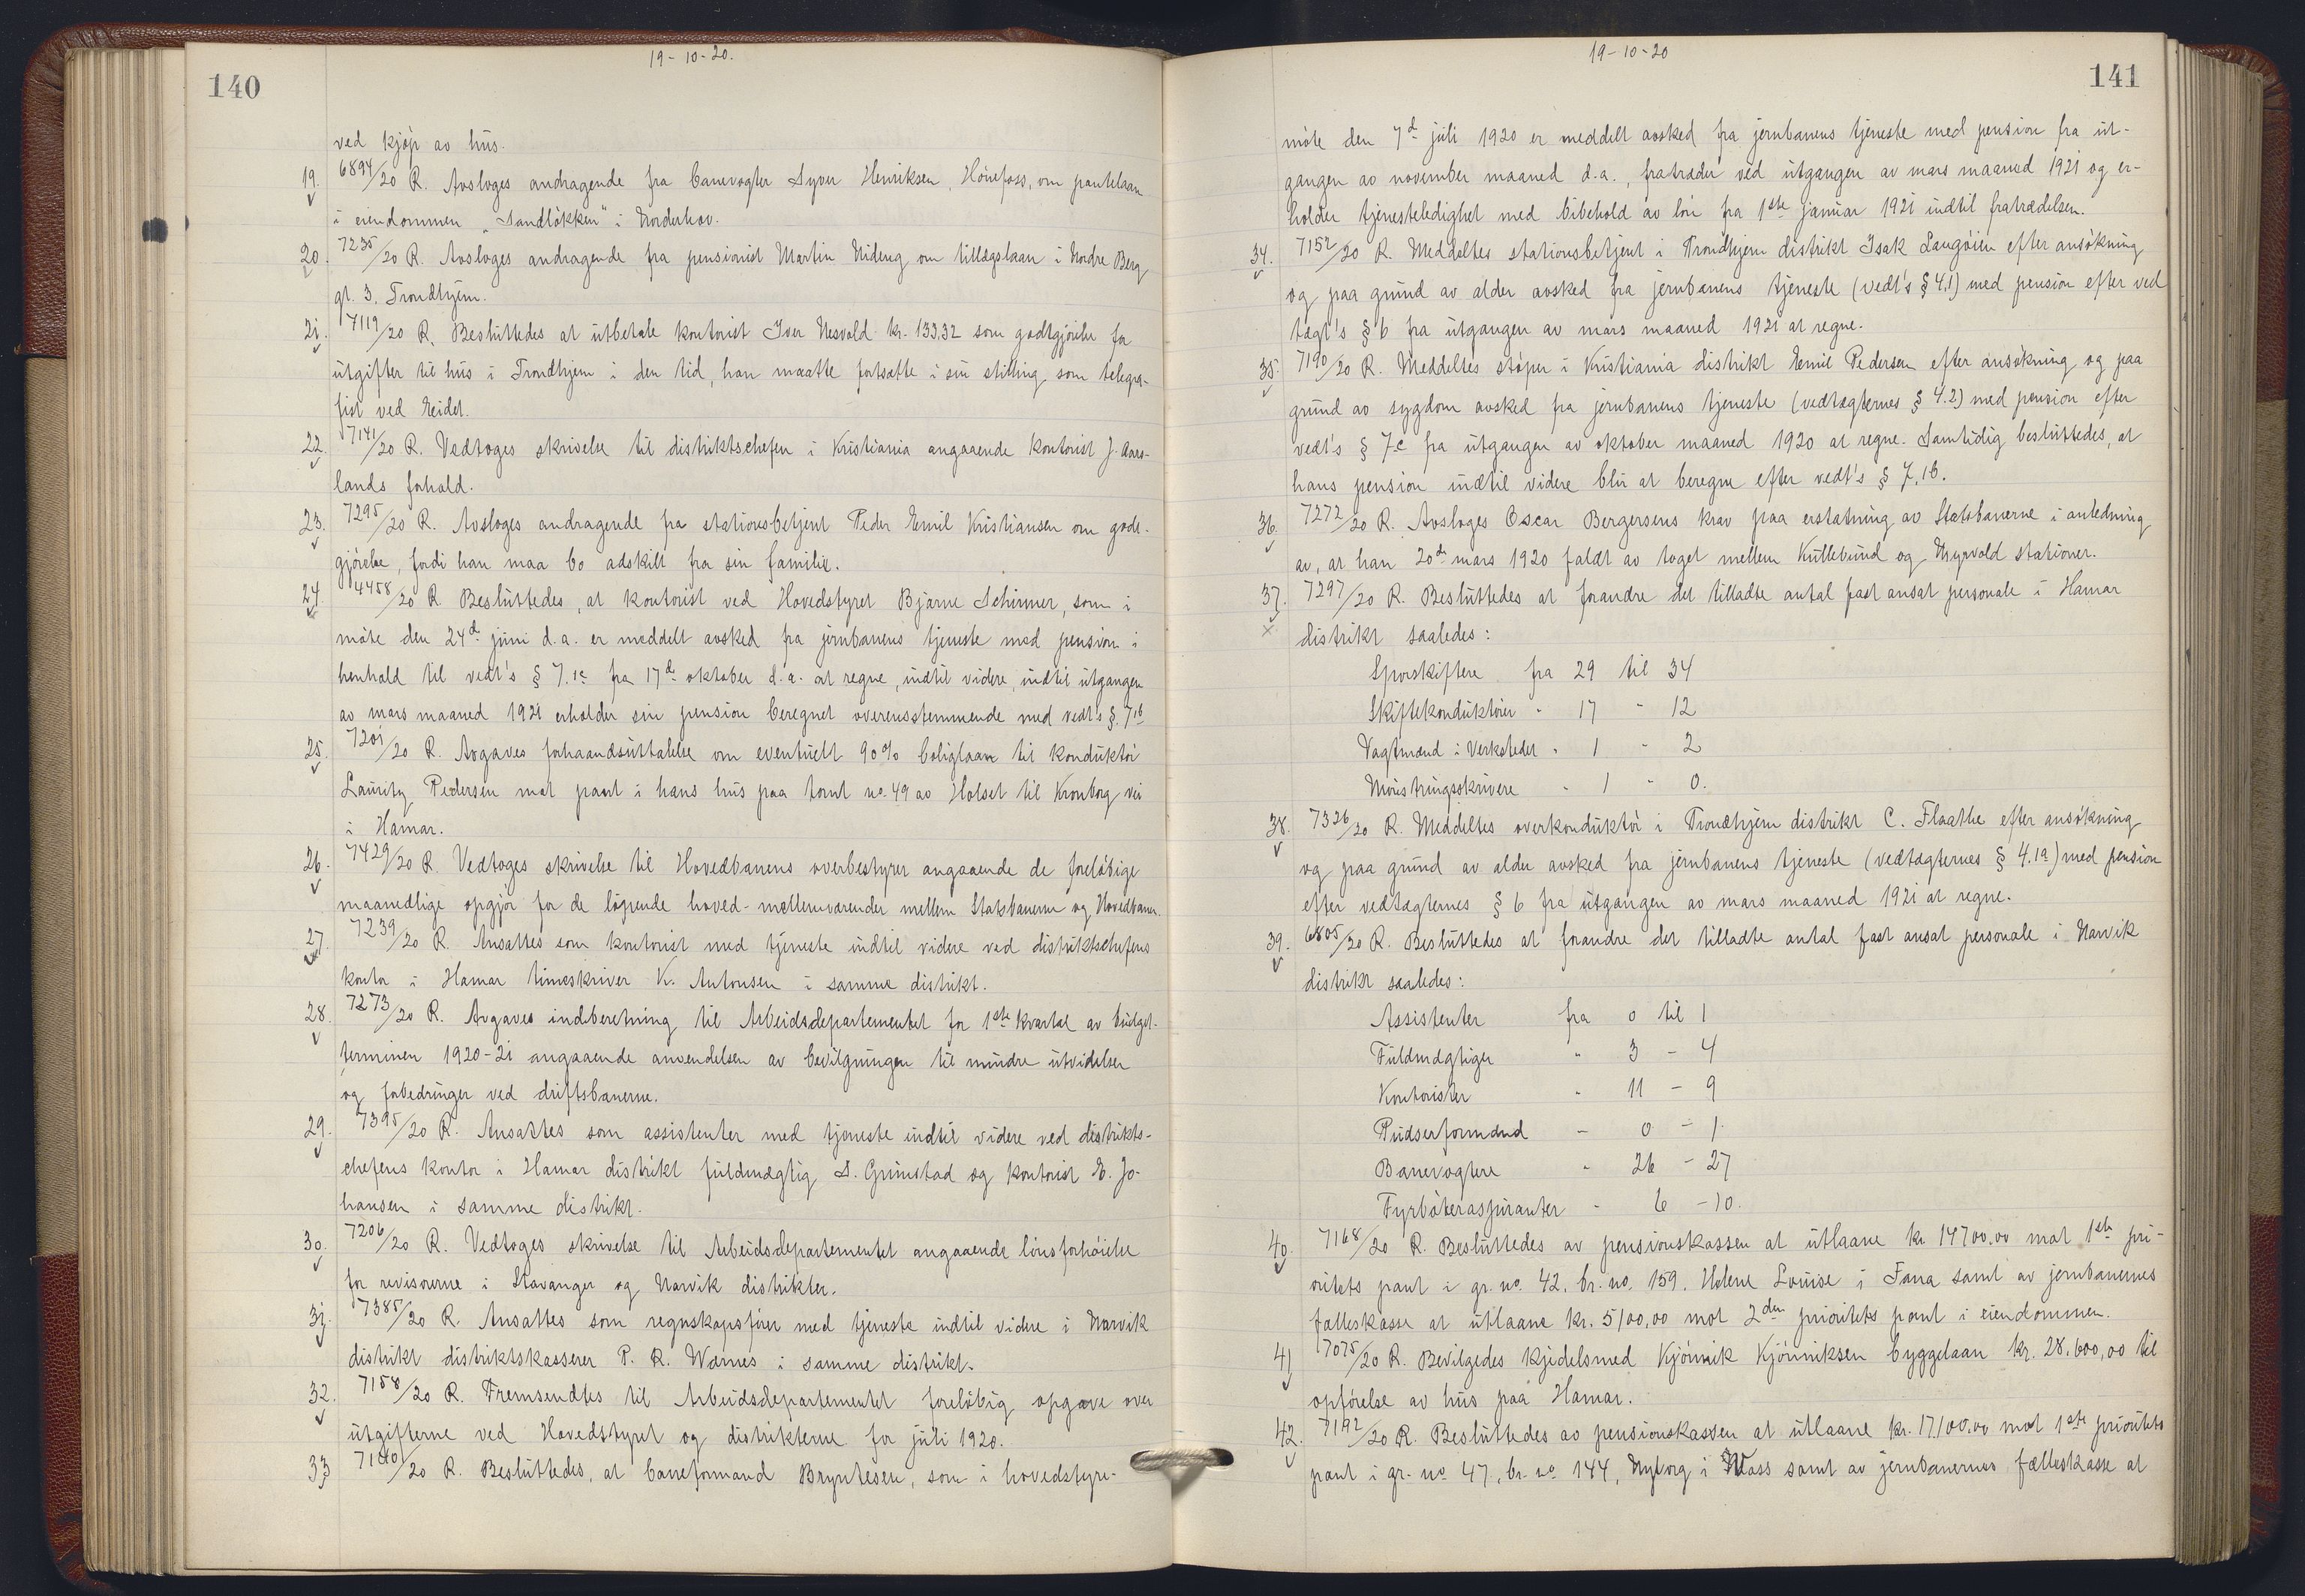 140
19-10-20.
ved kjøp av hus.
19. 6894/20 R. Avsloges andragende fra banevogter Syver Henriksen, Hönefoss, om pantelaan
i eiendommen "Sandløkken" i Norderhov.
20. 7235/20 R. Avsloges andragende fra pensionist Martin Rideng om tillægslaan i Nordre Berg
gt. 3, Trondhjem.
21. 7119/20 R. Besluttedes at utbetale kontorist Iver Nesvold kr. 133,32 som godtgjörelse for
utgifter til hus i Trondhjem i den tid, han maatte fortsætte i sin stilling som telegra-
fist ved Eidet.
22. 7141/20 R. Vedtoges skrivelse til distriktschefen i Kristiania angaaende kontorist J. Aars-
lands forhold.
23. 7295/20 R. Avsloges andragende fra stationsbetjent Peder Emil Kristiansen om godt-
gjörelse, fordi han maa bo adskilt fra sin familie.
24. 4458/20 R. Besluttedes, at kontorist ved Hovedstyret Bjarne Schirmer, som i
möte den 24de juni d.a. er meddelt avsked fra jernbanens tjeneste med pension i
henhold til vedt's § 7.1c fra 17de oktober d.a. at regne, indtil videre, indtil utgangen
av mars maaned 1921 erholder sin pension beregnet overensstemmende med vedt's § 7.1b
25. 7201/20 R. Avgaves forhaandsuttalelse om eventuelt 90% boliglaan til konduktör
Lauritz Pedersen mot pant i hans hus paa tomt no. 49 av Holset til Kronborg vei
i Hamar.
26. 7429/20 R. Vedtoges skrivelse til Hovedbanens overbestyrer angaaende de forelöbige
maanedlige opgjör for de löpende hoved-mellemværender mellem Statsbanerne og Hovedbanen.
27. 7239/20 R. Ansattes som kontorist med tjeneste indtil videre ved distriktschefens
kontor i Hamar timeskriver K. Antonsen i samme distrikt.
28. 7273/20 R. Avgaves indberetning til Arbeidsdepartementet for 1ste kvartal av budget-
terminen 1920-21 angaaende anvendelsen av bevilgningen til mindre utvidelser
og forbedringer ved driftsbanerne.
29. 7395/20 R. Ansattes som assistenter med tjeneste indtil videre ved distrikts-
chefens kontor i Hamar distrikt fuldmægtig S. Grimstad og kontorist E. Jo-
hansen i samme distrikt.
30. 7206/20 R. Vedtoges skrivelse til Arbeidsdepartementet angaaende lönsforhöielse
for revisorerne i Stavanger og Narvik distrikter.
31. 7385/20 R. Ansattes som regnskapsförer med tjeneste indtil videre i Narvik
distrikt distriktskasserer P. R. Wærnes i samme distrikt.
32. 7158/20 R. Fremsendtes til Arbeidsdepartementet forelöbig opgave over
utgifterne ved Hovedstyret og distrikterne for juli 1920.
33. 7140/20 R. Besluttedes, at baneformand Bryntesen, som i hovedstyre-
141
19-10-20
möte den 7de juli 1920 er meddelt avsked fra jernbanens tjeneste med pension fra ut-
gangen av november maaned d.a., fratræder ved utgangen av mars maaned 1921 og er-
holder tjenesteledighet med bibehold av lön fra 1ste januar 1921 indtil fratrædelsen.
34. 7152/20 R. Meddeltes stationsbetjent i Trondhjem distrikt Isak Langöien efter ansökning
og paa grund av alder avsked fra jernbanens tjeneste (vedt's § 4,1) med pension efter ved
tægt's § 6 fra utgangen av mars maaned 1921 at regne.
35. 7190/20 R. Meddeltes stöper i Kristiania distrikt Emil Pedersen efter ansökning og paa
grund av sygdom avsked fra jernbanens tjeneste (vedtægternes § 4.2) med pension efter
vedt's § 7.c fra utgangen av oktober maaned 1920 at regne. Samtidig besluttedes, at
hans pension indtil videre blir at beregne efter vedt's § 7.1b.
36. 7272/20 R. Avsloges Oscar Bergersens krav paa erstatning av Statsbanerne i anledning
av, at han 20de mars 1920 faldt av toget mellem Kullebund og Myrvold stationer.
37. 7297/20 R. Besluttedes at forandre det tilladte antal fast ansat personale i Hamar
distrikt saaledes:
Sporskiftere fra 29 til 34
Skiftekonduktörer " 17 " 12
Vagtmænd i Verksteder " 1 " 2
Mönstringsskrivere " 1 " 0.
38. 7326/20 R. Meddeltes overkonduktör i Trondhjem distrikt C. Flaathe efter ansökning
og paa grund av alder avsked fra jernbanens tjeneste (vedtægternes § 4.1a) med pension
efter vedtægternes § 6 fra utgangen av mars maaned 1921 at regne.
39. 6805/20 R. Besluttedes at forandre det tilladte antal fast ansat personale i Narvik
distrikt saaledes:
Assistenter fra 0 til 1
Fuldmægtiger " 3 - 4
Kontorister " 11 - 9
Pudserformænd - 0 - 1
Banevogtere " 26 - 27
Fyrböteraspiranter - 6 - 10.
40. 7168/20 R. Besluttedes av pensionskassen at utlaane kr. 14700,00 mot 1ste pri-
oritets pant i gr. no. 42, br. no. 159, Helene Louise i Fana samt av jernbanernes
fælleskasse at utlaane kr. 5100,00 mot 2den prioritets pant i eiendommen.
41. 7075/20 R. Bevilgedes kjedelsmed Kjönnik Kjönniksen byggelaan kr. 28.600,00 til
opförelse av hus paa Hamar.
42. 7192/20 R. Besluttedes av pensionskassen at utlaane kr. 17100,00 mot 1ste prioritets
pant i gr. no. 47, br. no. 144, Nyborg i Voss samt av jernbanernes fælleskasse at